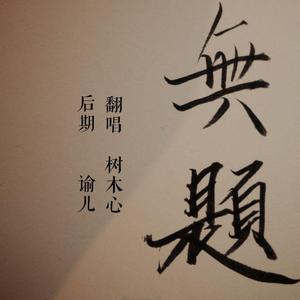 無題
翻唱 树木心
后期 谕儿